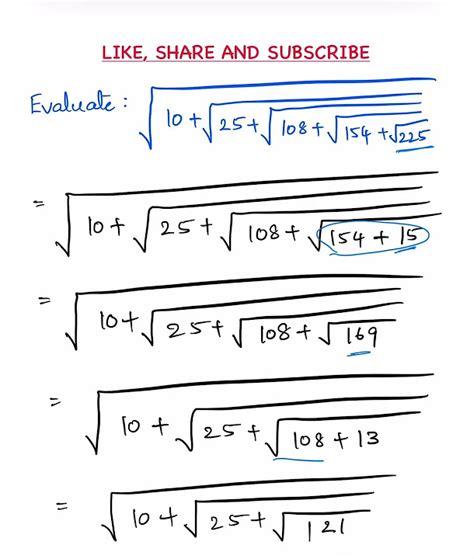 LIKE, SHARE AND SUBSCRIBE
Evaluate : √(10 + √(25 + √(108 + √(154 + √225))))
= √(10 + √(25 + √(108 + √(154 + 15))))
= √(10 + √(25 + √(108 + √169)))
= √(10 + √(25 + √(108 + 13)))
= √(10 + √(25 + √121))